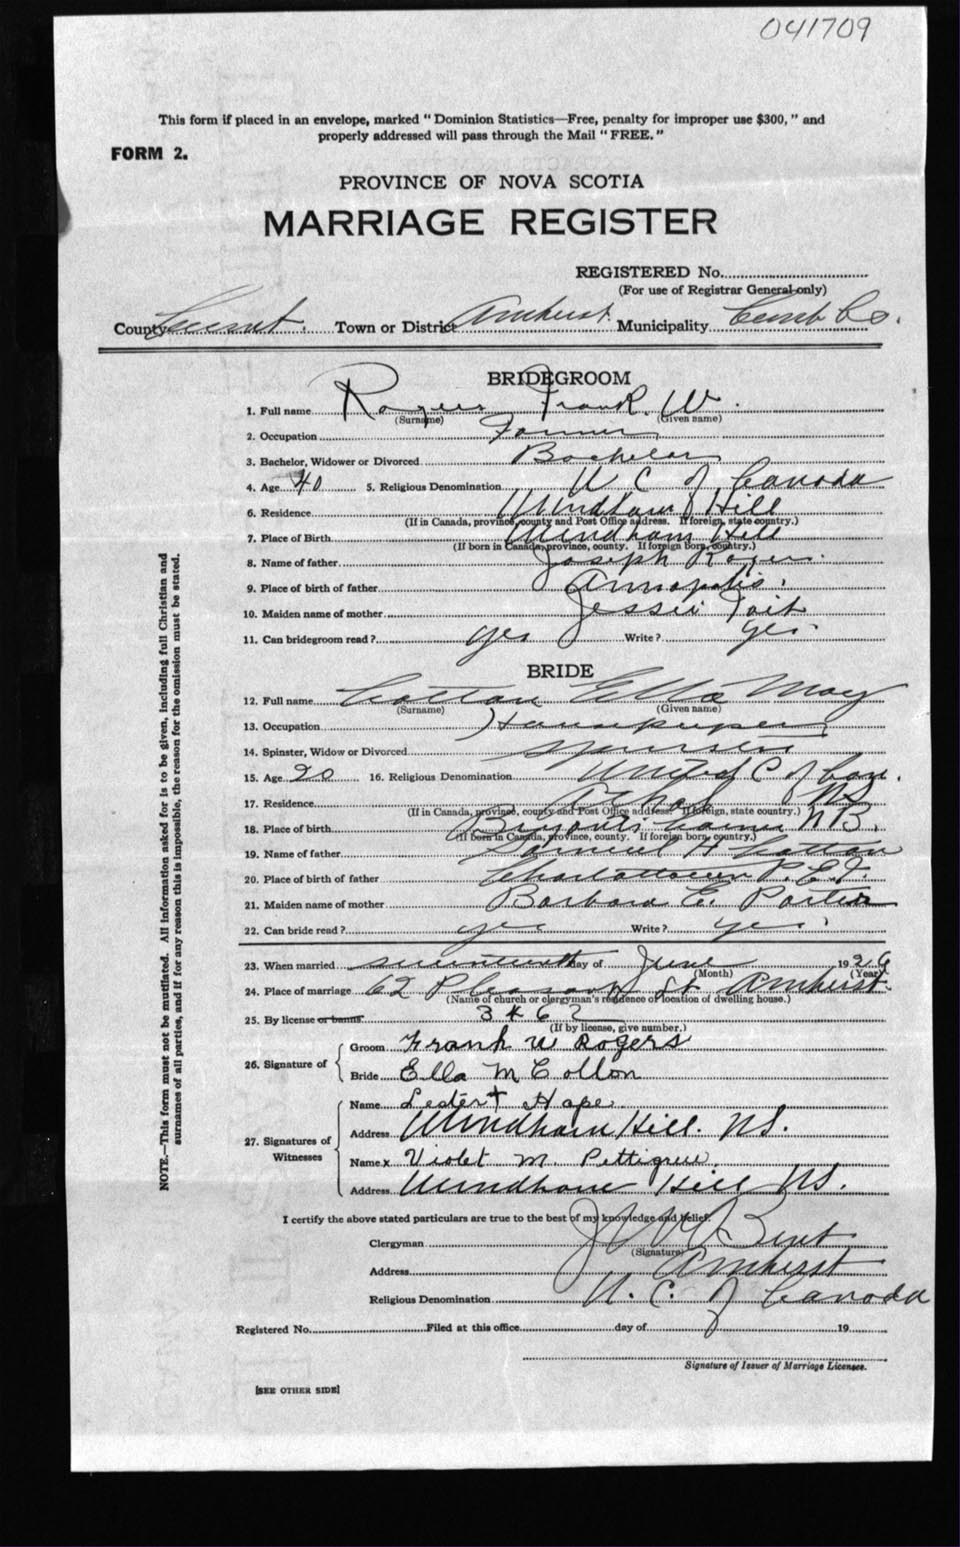 041709
This form if placed in an envelope, marked “ Dominion Statistics—Free, penalty for improper use $300, ” and
properly addressed will pass through the Mail “ FREE. ”
FORM 2.
PROVINCE OF NOVA SCOTIA
MARRIAGE REGISTER
REGISTERED No.
(For use of Registrar General only)
County Town or District Amherst Municipality Cumb Co.
BRIDEGROOM
1. Full name Rogers Frank. W.
(Surname) (Given name)
2. Occupation Farmer
3. Bachelor, Widower or Divorced Bachelor
4. Age 40 5. Religious Denomination U C of Canada
6. Residence Windham Hill
(If in Canada, province, county and Post Office address. If foreign, state country.)
7. Place of Birth Windham Hill
(If born in Canada, province, county. If foreign born, country.)
8. Name of father Joseph Rogers
9. Place of birth of father Annapolis
10. Maiden name of mother Jessie Tait
11. Can bridegroom read? yes Write? yes
BRIDE
12. Full name Cotton Ella May
(Surname) (Given name)
13. Occupation Housekeeper
14. Spinster, Widow or Divorced Spinster
15. Age 20 16. Religious Denomination United C of Can.
17. Residence NS
(If in Canada, province, county and Post Office address. If foreign, state country.)
18. Place of birth Corner N B.
(If born in Canada, province, county. If foreign born, country.)
19. Name of father Samuel H Cotton
20. Place of birth of father Charlottetown P. E. I.
21. Maiden name of mother Barbara E. Porter
22. Can bride read? yes Write? yes
23. When married seventeenth day of June 1926
(Month) (Year)
24. Place of marriage 62 Pleasant St Amherst
(Name of church or clergyman's residence or location of dwelling house.)
25. By license or banns
(If by license, give number.)
26. Signature of
Groom Frank W Rogers
Bride Ella M Cotton
27. Signatures of Witnesses
Name Hope
Address Windham Hill. NS.
Name x Violet M. Pettigrew
Address Windham Hill NS.
I certify the above stated particulars are true to the best of my knowledge and belief.
Clergyman Bent
(Signature)
Address Amherst
Religious Denomination U. C. of Canada
Registered No. Filed at this office day of 19
Signature of Issuer of Marriage Licenses.
[SEE OTHER SIDE]
NOTE.—This form must not be mutilated. All information asked for is to be given, including full Christian and
surnames of all parties, and if for any reason this is impossible, the reason for the omission must be stated.